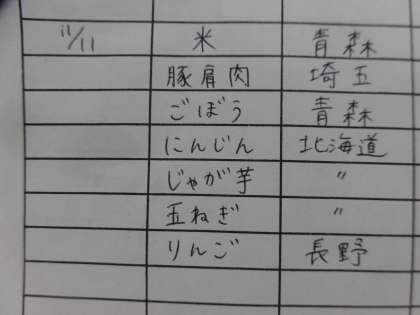 11/11 米 青森
豚肩肉 埼玉
ごぼう 青森
にんじん 北海道
じゃが芋 〃
玉ねぎ 〃
りんご 長野